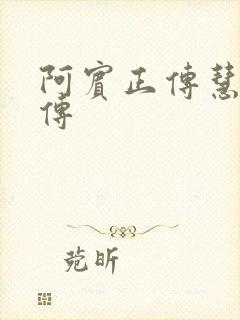 阿賓正傳慧
傳
菀昕